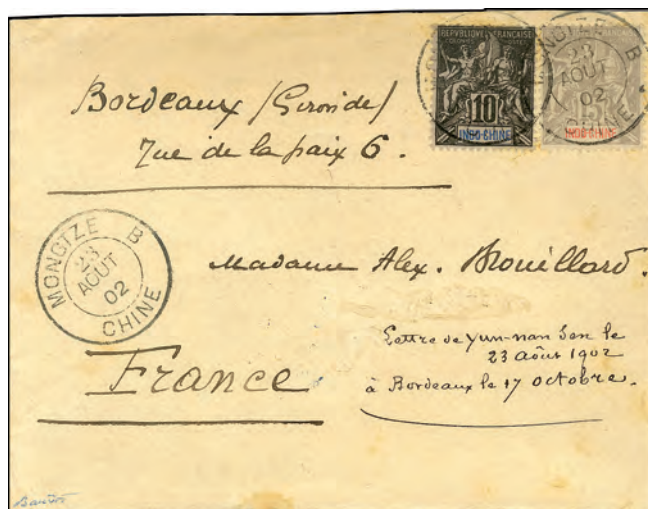 RÉPUBLIQUE FRANÇAISE
COLONIES POSTES
10
INDO-CHINE
INDO-CHINE
MONGTZE B
23
AOUT
02
CHINE
Bordeaux (Gironde)
Rue de la paix 6.
MONGTZE B
23
AOUT
02
CHINE
Madame Alex. Brouillard.
Lettre de Yun-nan Sen le
23 août 1902
à Bordeaux le 17 octobre.
France